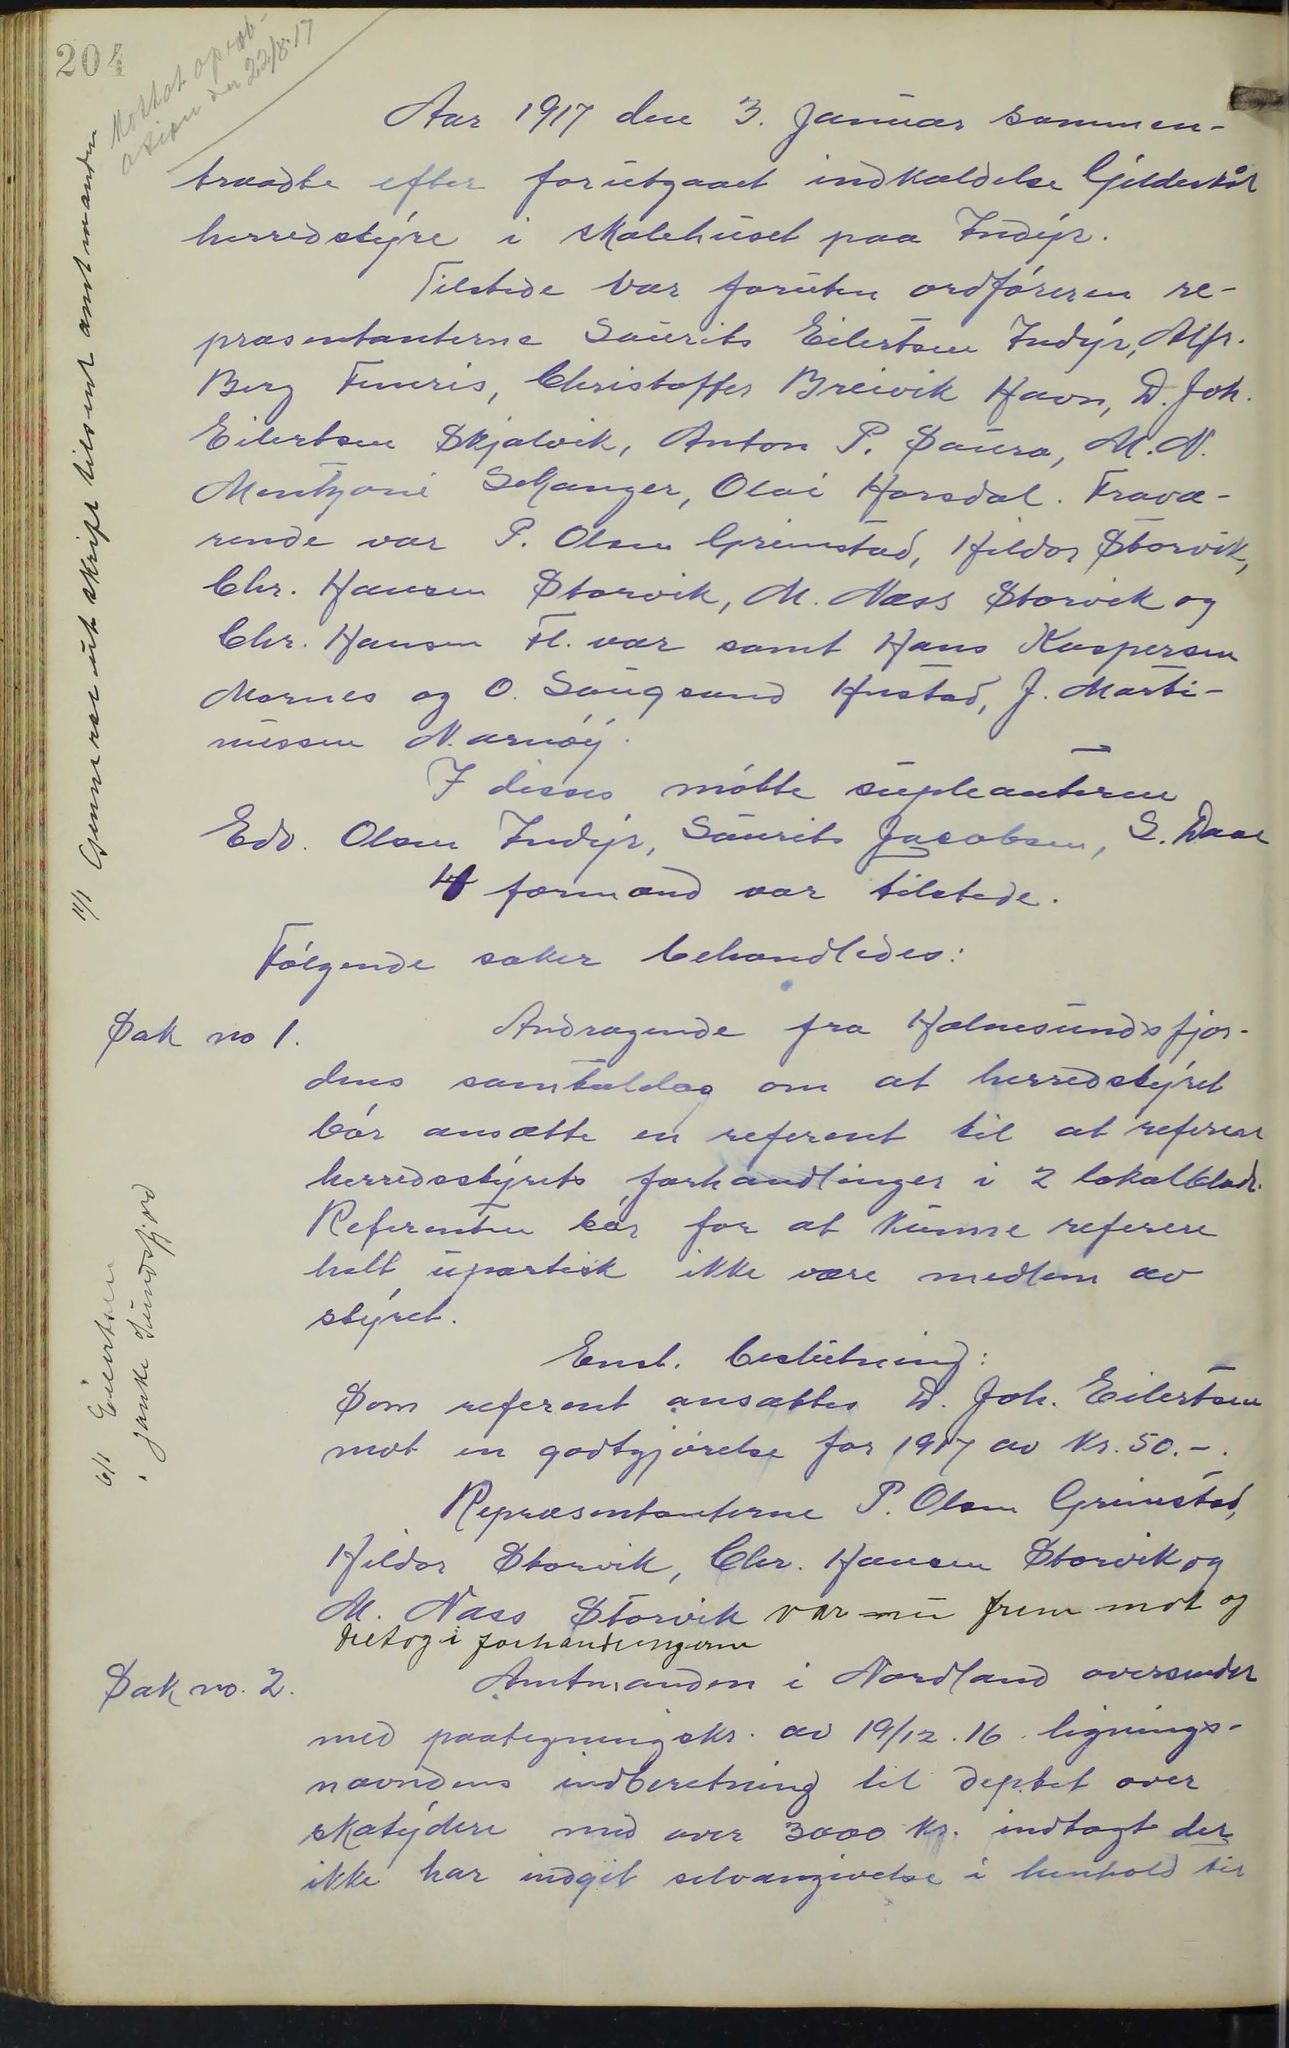 204
Mottat aprob-
asion den 22/8.17
Aar 1917 den 3. januar sammen-
traadte efter forutgaaet indkaldelse Gildeskål
herredstyre i skolehuset paa Indyr.
Tilstede var foruten ordføreren re-
præsentanterne Laurits Eilertsen Indyr, Alfr.
Berg Finnes, Christoffer Breivik Havn, D. Joh.
Eilertsen Skjælvik, Anton P. Saura, M. N.
Mentzoni Selvanger, Olai Horsdal. Fravæ-
rende var P. Olsen Grimstad, Hildor Storvik,
Chr. Hansen Storvik, M. Næss Storvik og
Chr. Hansen Fl. vær samt Hans Kaspersen
Mornes og O. Laugsand Hustad, J. Marti-
nussen N. arnøy.
I disses møtte supleanterne
Edv. Olsen Indyr, Laurits Jacobsen, L. Daae
4 formænd var tilstede.
Følgende saker behandledes:
11/1 Gjennerset utskrift tilsent amtmanden
Sak no 1.
Andragende fra Holmesundsfjor-
dens samtalelag om at herredstyret
bør ansætte en referent til at referere
herredsstyrets forhandlinger i 2 lokalblade.
Referenten bør for at kunne referere
helt upartisk ikke være medlem av
styret.
Enst. beslutning:
Som referent ansættes D. Joh. Eilertsen
mot en godtgjørelse for 1917 av kr. 50.-.
6/1 Eilertsen
Sundsfjord
Repræsentanterne P. Olsen Grimstad,
Hildor Storvik, Chr. Hansen Storvik og
M. Næss Storvik var nu frem møt og
deltog i forhandlingerne
Sak no. 2.
Amtmanden i Nordland oversender
med paategningskr. av 19/12.16 lignings-
nævndens indberetning til deptet over
skatydere med over 3000 kr. indtægt der
ikke har indgit selvangivelse i henhold til